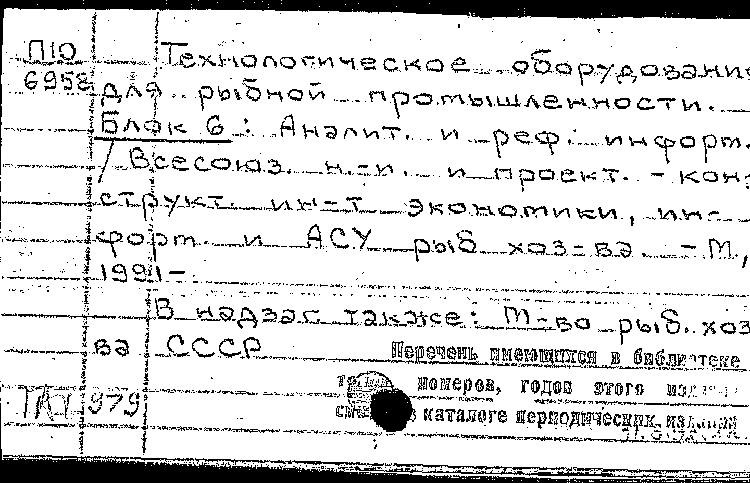 П10 Технологическое оборудование
6958 для рыбной промышленности.
Блок 6: Аналит. и реф. информ.
/ Всесоюз. н.-и. и проект.-кон-
структ. ин-т экономики, ин-
форт. и АСУ рыб хоз-ва. - М,
1991-
В надзаг также: М-во рыб. хоз
ва СССР
Перечень имеющихся в библиотеке
номеров, годов этого
каталоге периодических изданий
979